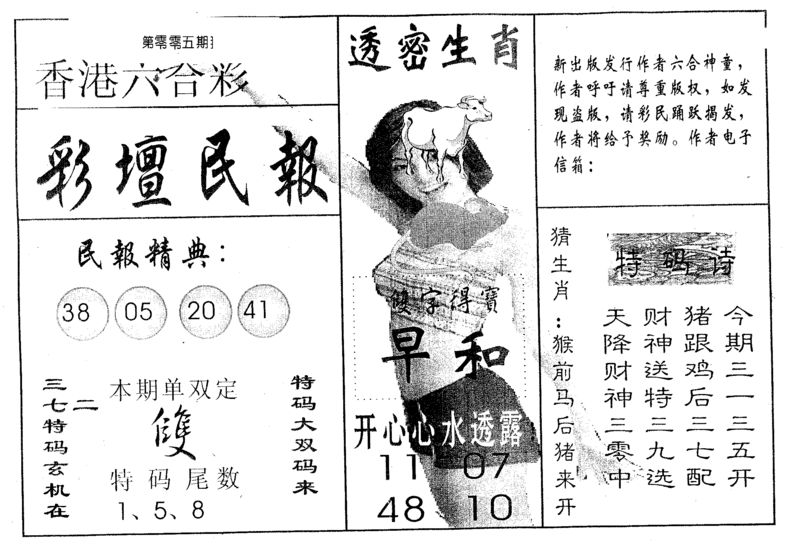 第零零五期
香港六合彩
彩壇民報
民報精典：
38 05 20 41
三七特码玄机在
二
本期单双定
雙
特码尾数
1、5、8
特码大双码来
透密生肖
雙字得寳
早 和
开心心水透露
11 07
48 10
新出版发行作者六合神童，
作者呼吁请尊重版权，如发
现盗版，请彩民踊跃揭发，
作者将给予奖励。作者电子
信箱：
猜生肖：猴前马后猪来开
特码诗
今期三一三五开
猪跟鸡后三七配
财神送特三九选
天降财神三零中